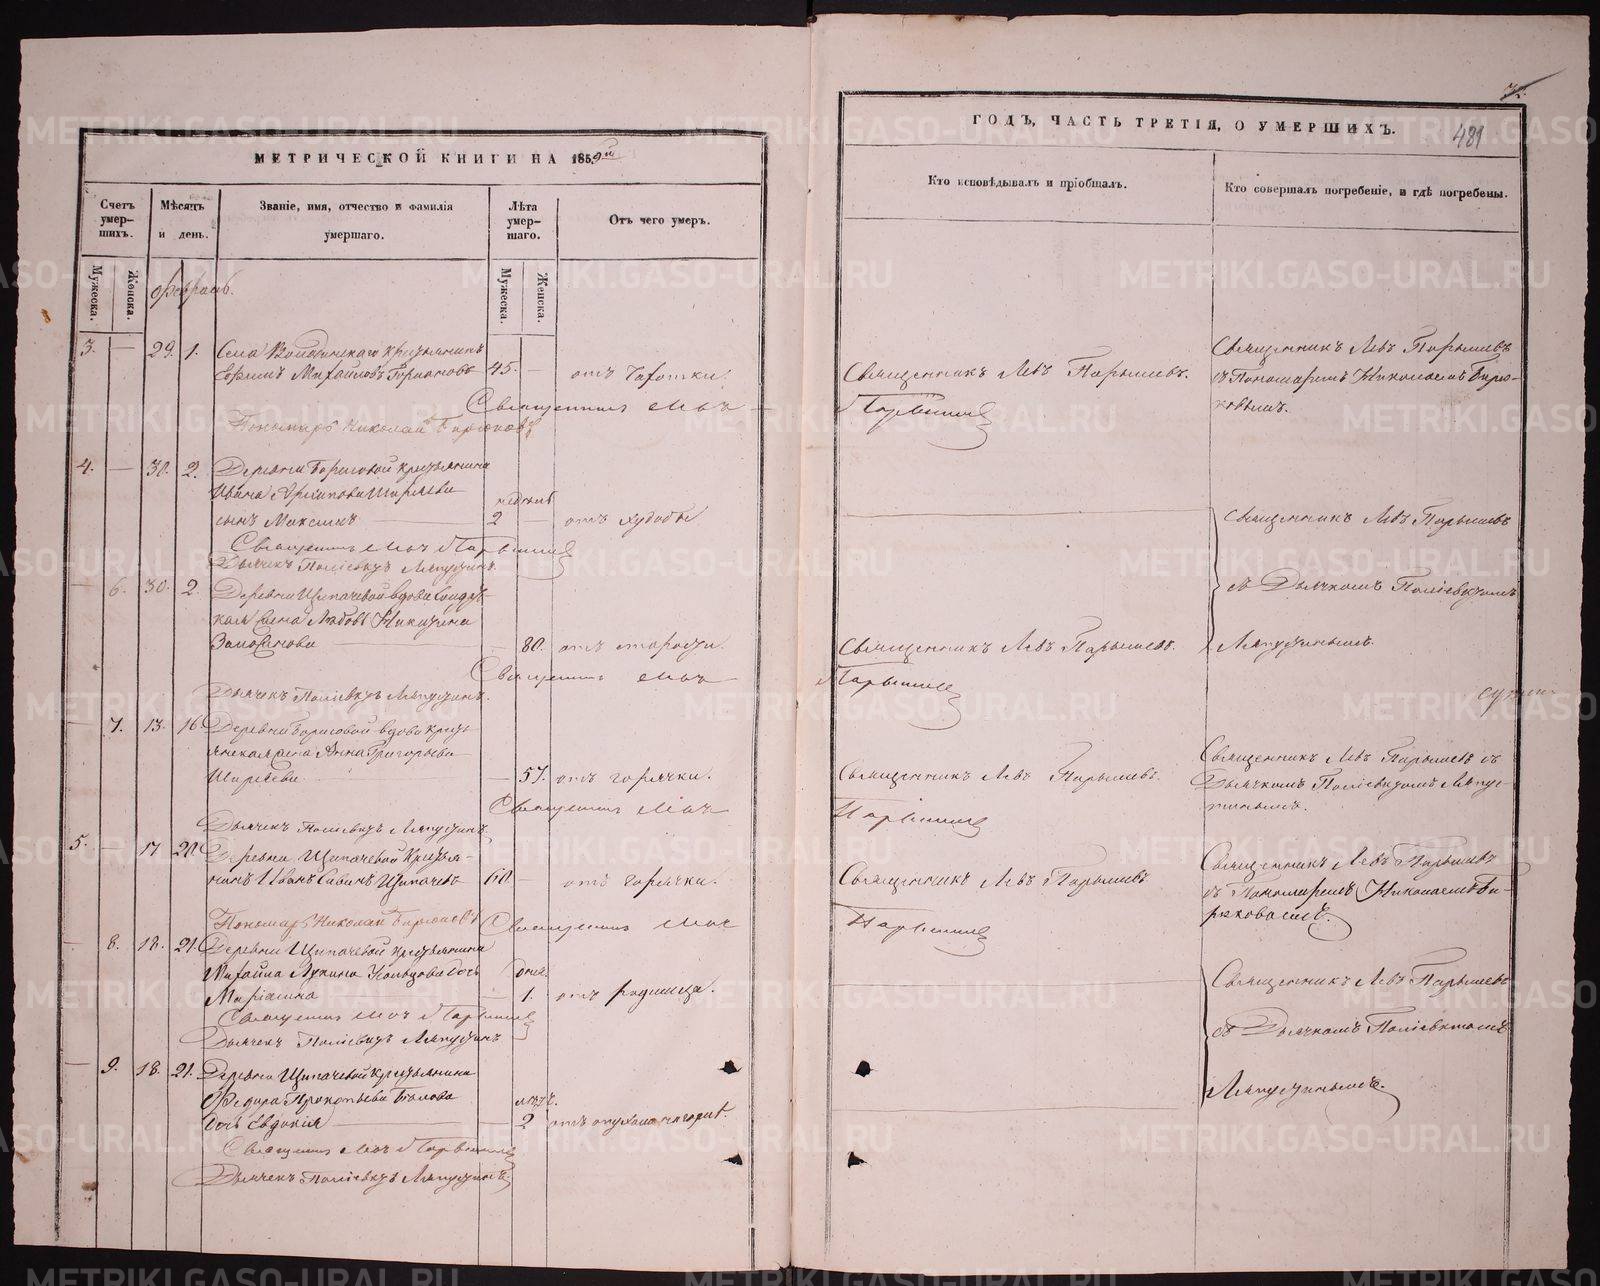 МЕТРИЧЕСКОЙ КНИГИ НА 1859й
Счетъ умер-шихъ.
Мѣсяцъ и день.
Званіе, имя, отчество и фамилія умершаго.
Лѣта умер-шаго.
Отъ чего умеръ.
Мужеска.
Женска.
Мужеска.
Женска.
Февраль.
3. — 29. 1. Села крестьянинъ
Ефимъ Михайловъ 45. — отъ чахотки.
Священникъ Левъ
Пономарь Николай Бирюковъ
4. — 30. 2. Деревни Борисовой крестьянина
Ивана Архипова Ширяева
недѣль
сынъ Максимъ 2 — отъ худобы
Священникъ Левъ Парышевъ
Дьячекъ Поліевктъ Ляпустинъ.
— 6. 30. 2. Деревни Щипачевой вдова
жена Любовь Никитина
80. отъ старости.
Священникъ Левъ
Дьячекъ Поліевктъ Ляпустинъ.
— 7. 13. 16 Деревни Борисовой вдова кресть-
янская жена Анна Григорьева
Ширяева — 57. отъ горячки.
Священникъ Левъ
Дьячекъ Поліевктъ Ляпустинъ
5. — 17 20. Деревни Щипачевой крестья-
нинъ Иванъ Савинъ Щипачевъ 60 — отъ горячки.
Пономарь Николай Бирюковъ Священникъ Левъ
— 8. 18. 21. Деревни Щипачевой крестьянина
Михаила Лукина дочь
Маріамна — 1. отъ родимца.
Священникъ Левъ Парышевъ
Дьячекъ Поліевктъ Ляпустинъ
— 9. 18. 21. Деревни Щипачевой крестьянина
Федора Прокопьева
дочь Евдокія — 2
Священникъ Левъ Парышевъ
Дьячекъ Поліевктъ Ляпустинъ
ГОДЪ, ЧАСТЬ ТРЕТІЯ, О УМЕРШИХЪ.
481
Кто исповѣдывалъ и пріобщалъ.
Кто совершалъ погребеніе, и гдѣ погребены.
Священникъ Левъ Парышевъ.
Парышевъ
Священникъ Левъ Парышевъ
съ Пономаремъ Николаемъ Бирю-
ковымъ.
Священникъ Левъ Парышевъ
съ Дьячкомъ Поліевктомъ
Ляпустинымъ.
Священникъ Левъ Парышевъ.
Парышевъ
Священникъ Левъ Парышевъ.
Парышевъ
Священникъ Левъ Парышевъ съ
Дьячкомъ Поліевктомъ Ляпус-
тинымъ.
Священникъ Левъ Парышевъ
Парышевъ
Священникъ Левъ Парышевъ
съ Пономаремъ Николаемъ Би-
рюковымъ.
Священникъ Левъ Парышевъ
съ Дьячкомъ Поліевктомъ
Ляпустинымъ.
METRIKI.GASO-URAL.RU